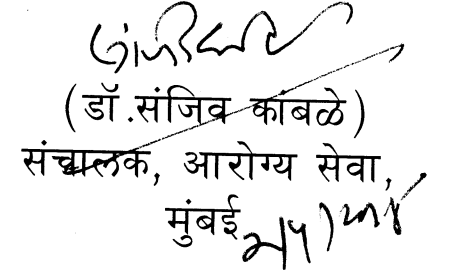 (डॉ.संजिव कांबळे)
संचालक, आरोग्य सेवा,
मुंबई